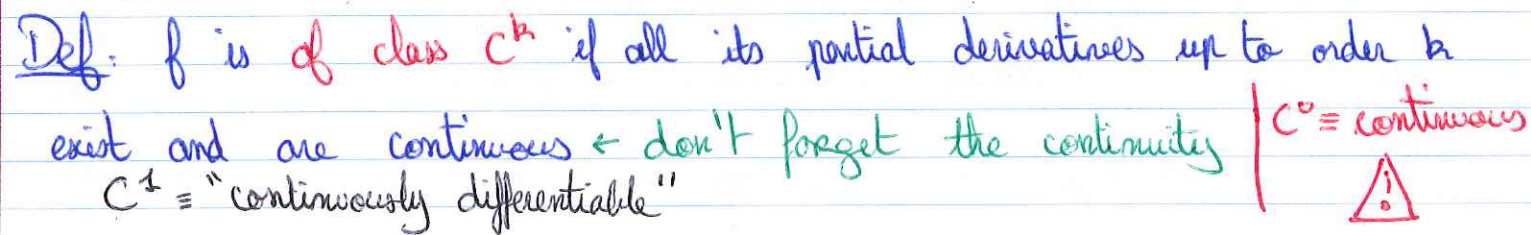 Def: f is of class C^k if all its partial derivatives up to order k
exist and are continuous ← don't forget the continuity | C° ≡ continuous
C^1 ≡ "continuously differentiable" !